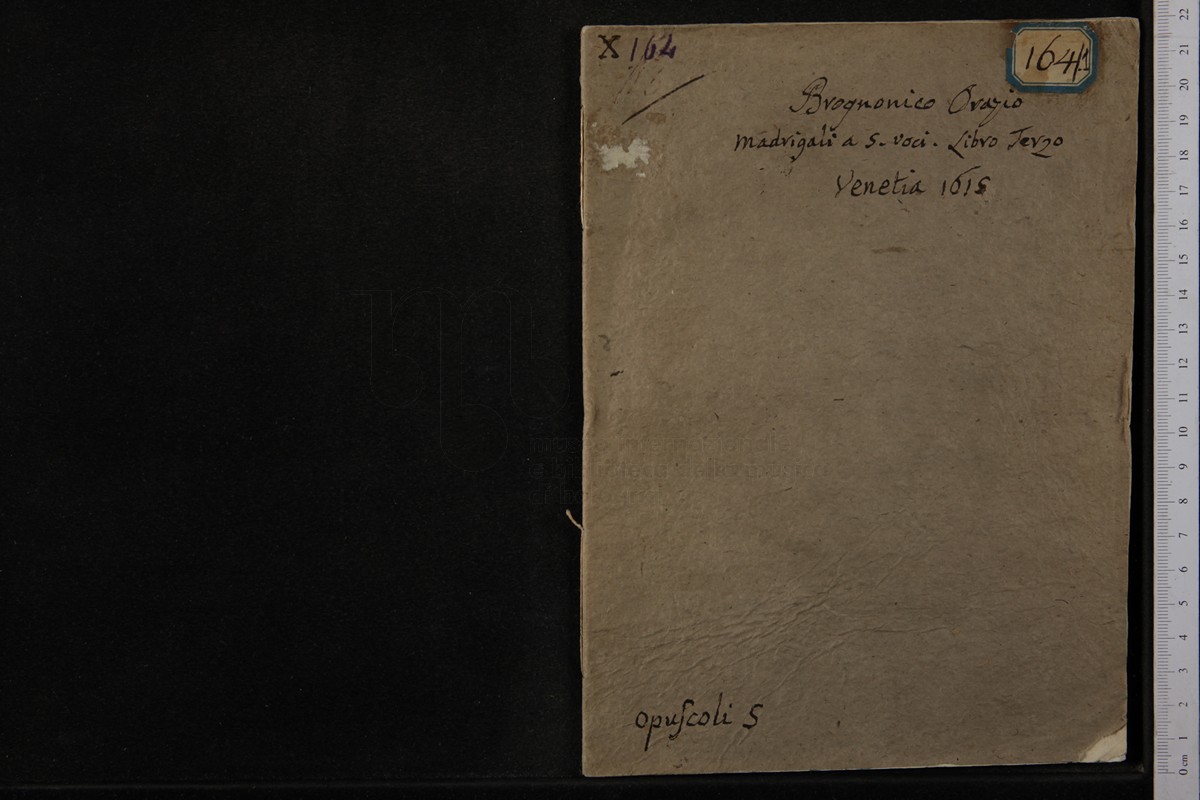 X 164
164/1
Brognonico Orazio
Madrigali a 5. voci. Libro Terzo
Venetia 1615
opuſcoli 5
22
21
20
19
18
17
16
15
14
13
12
11
10
9
8
7
6
5
4
3
2
1
0 cm